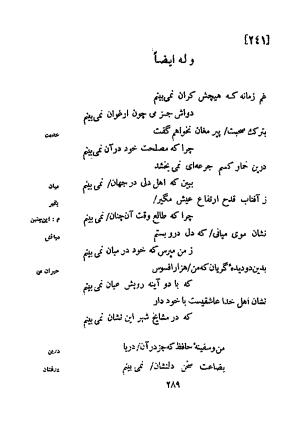 [۲۴۱]
وله ایضاً
غم زمانه که هیچش کران نمی‌بینم
دواش جز می چون ارغوان نمی‌بینم
بترک صحبت/ پیر مغان نخواهم گفت
خدمت
چرا که مصلحت خود در آن نمی‌بینم
درین خمار کسم جرعه‌ای نمی‌بخشد
ببین که اهل دل در جهان/ نمی‌بینم
میان
ز آفتاب قدح ارتفاع عیش مگیر/
بگیر
چرا که طالع وقت آن‌چنان/ نمی‌بینم
م : این‌چنین
نشان موی میانی/ که دل درو بستم
میانش
ز من مپرس که خود در میان نمی‌بینم
بدین دو دیدهٔ گریان که من/ هزار افسوس
حیران من
که با دو آینه رویش عیان نمی‌بینم
نشان اهل خدا عاشقیست با خود دار
که در مشایخ شهر این نشان نمی‌بینم
من و سفینهٔ حافظ که جز در آن/ دریا
درین
بضاعت سخن دلنشان/ نمی‌بینم
درفشان
۲۸۹